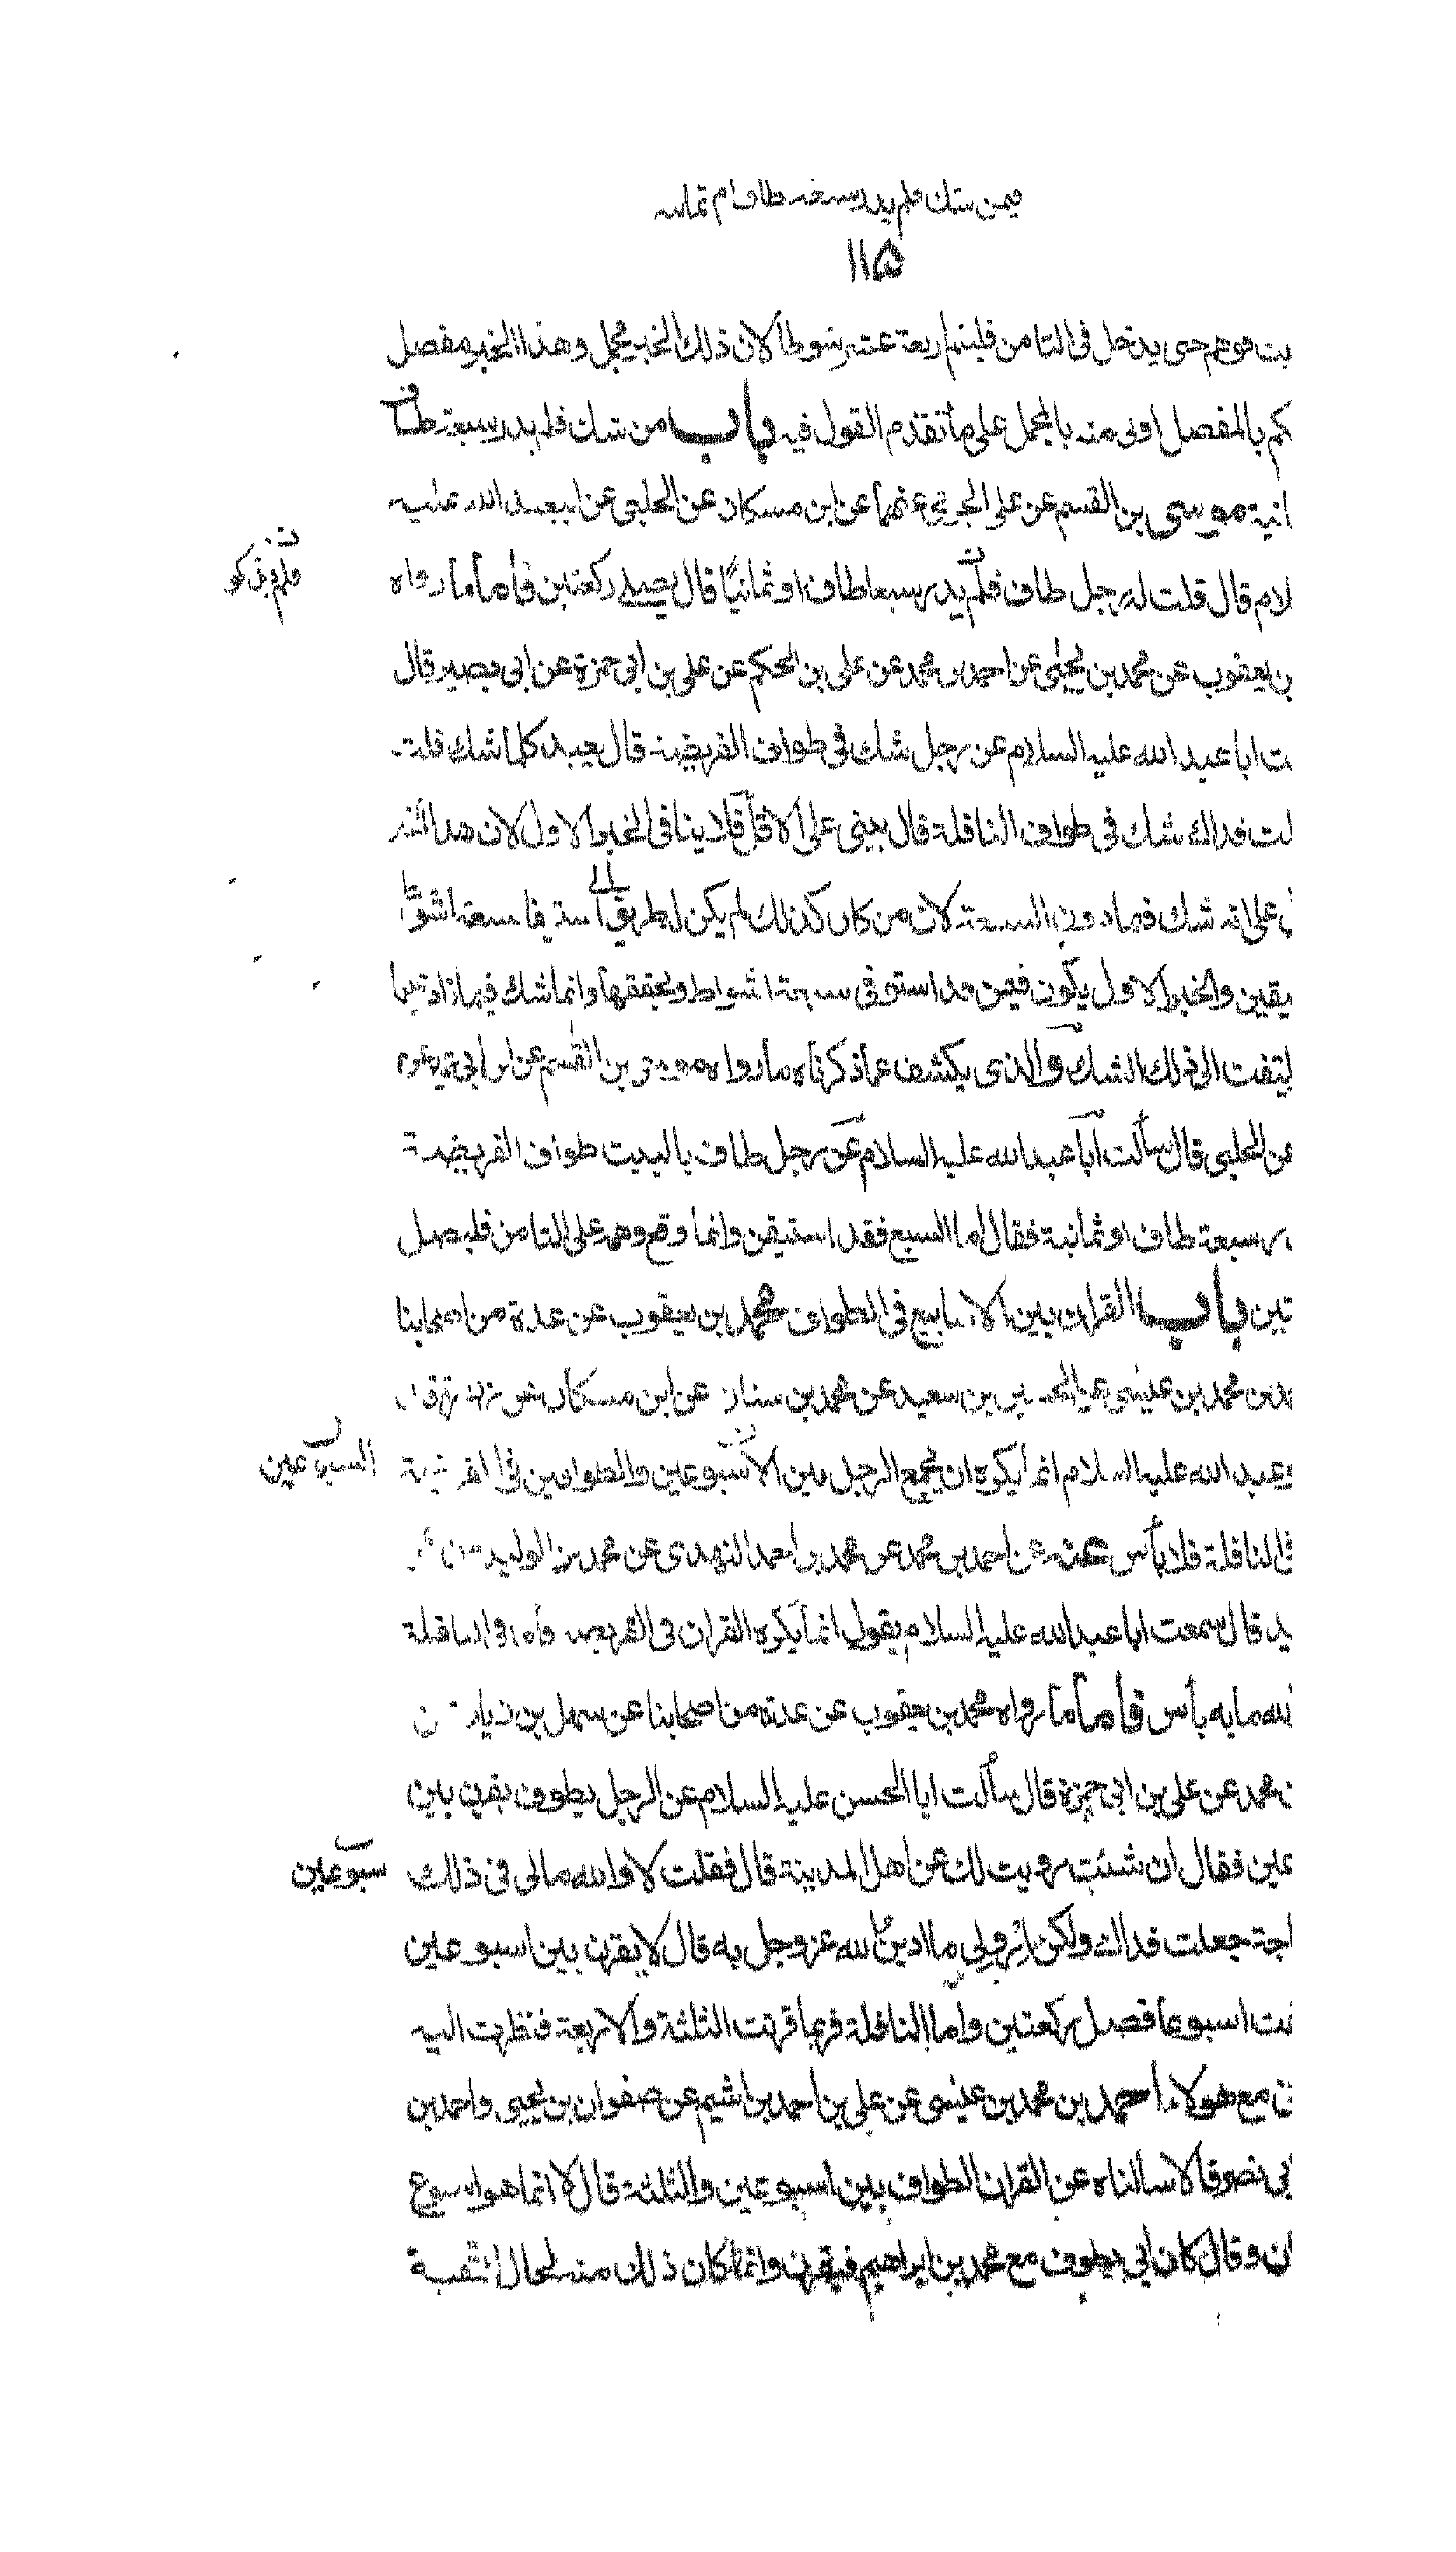 فيمن شك فلم يدر سبعة طاف ام ثمانية
١١۵
حتى يدخل فى الثامن فليتم اربعة عشر شوطا لان ذلك الخبر مجمل وهذا الخبر مفصل
كم بالمفصل اولى منه بالمجمل على ما تقدم القول فيه باب من شك فلم يدر سبعة طاف
انية موسى بن القسم عن على الجرمى عنهما عن ابن مسكان عن الحلبى عن ابيعبد الله عليه
لام قال قلت له رجل طاف فلم يدر سبعا طاف او ثمانيا قال يصلى ركعتين فأما ما رواه
فلم يذكر
بن يعقوب عن محمد بن يحيى عن احمد بن محمد عن على بن الحكم عن على بن ابى حمزة عن ابى بصير قال
ت ابا عبد الله عليه السلام عن رجل شك فى طواف الفريضة قال يعيد كلما شك قلت
لت فداك شك فى طواف النافلة قال يبنى على الاقل فلا ينافى الخبر الاول لان هذا الخبر
على انه شك فيما دون السبعة لان من كان كذلك لم يكن له طريق الى استيفا سبعة اشواط
يقين والخبر الاول يكون فيمن قد استوفى سبعة اشواط وتحققها وانما شك فيما زاد
لتفت الى ذلك الشك والذى يكشف عما ذكرناه ما رواه موسى بن القسم عن ابن ابى عمير
عن الحلبى قال سألت ابا عبد الله عليه السلام عن رجل طاف بالبيت طواف الفريضة
ر سبعة طاف او ثمانية فقال اما السبع فقد استيقن وانما وقع وهمه على الثامن فليصل
تين باب القران بين الاسابيع فى الطواف محمد بن يعقوب عن عدة من اصحابنا
مد بن محمد بن عيسى عن الحسين بن سعيد عن محمد بن سنان عن ابن مسكان عن زرارة قال
عبد الله عليه السلام انما يكره ان يجمع الرجل بين الاسبوعين والطوافين فى الفريضة
السبوعين
فى النافلة فلا بأس عنه عن احمد بن محمد عن محمد بن احمد النهدى عن محمد بن الوليد
يد قال سمعت ابا عبد الله عليه السلام يقول انما يكره القران فى الفريضة فأما فى النافلة
لله ما به بأس فأما ما رواه محمد بن يعقوب عن عدة من اصحابنا عن سهل بن زياد
ن محمد عن على بن ابى حمزة قال سألت ابا الحسن عليه السلام عن الرجل يطوف يقرن بين
عين فقال ان شئت رويت لك عن اهل المدينة قال فقلت لا والله مالى فى ذلك
سبوعين
اجة جعلت فداك ولكن ارو لى ما ادين لله عز وجل به قال لا يقرن بين اسبوعين
فت اسبوعا فصل ركعتين واما النافلة فربما قرنت الثلثة والاربعة فنظرت اليه
مع هولاء احمد بن محمد بن عيسى عن على بن احمد بن اشيم عن صفوان بن يحيى واحمد بن
ابى نصر قالا سالناه عن القران الطواف بين اسبوعين والثلثة قال لا انما هو اسبوع
ان وقال كان ابى يطوف مع محمد بن ابراهيم فيقرن وانما كان ذلك منه لحال التقية